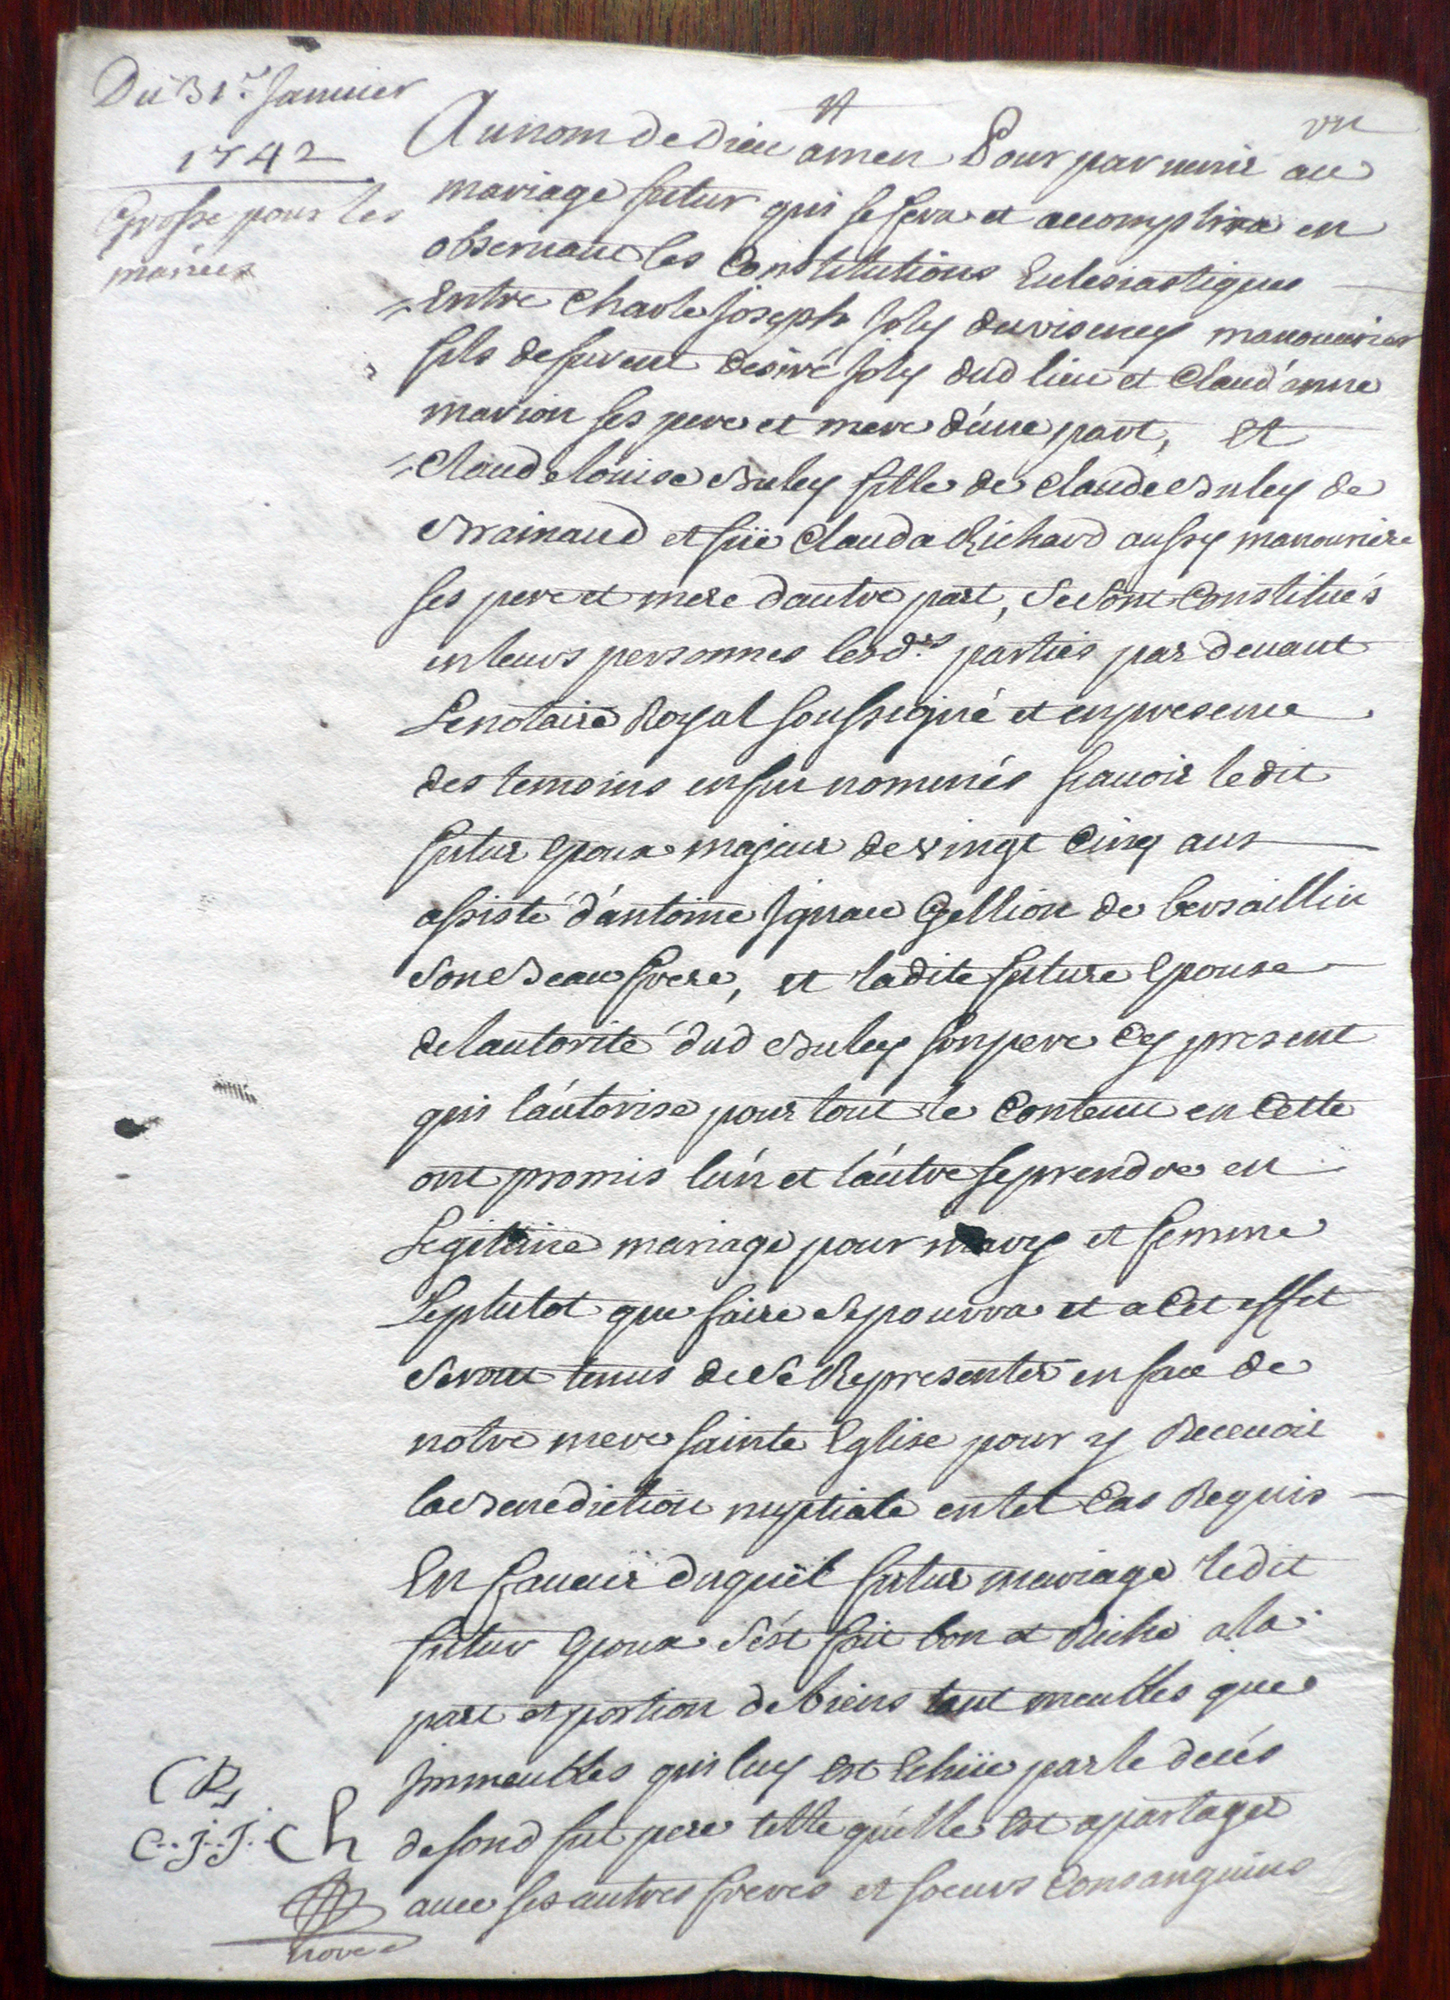 Du 31.e Januier
1742
Grosse pour les
mariés
Au nom de Dieu amen Pour paruenir au
mariage futur qui se fera et accomplira en
obseruant les Constitutions Eclesiastiques
Entre Charle Joseph Joly manouurier
fils de furent desiré Joly dud lieu et Claud'anne
marion ses pere et mere d'úne part, Et
Claud louise Buley fille de Claude Buley de
Brainaud et füe Clauda Richard aussy manouuriere
ses pere et mere d'autre part, Se sont Constitués
en leurs personnes lesd.es parties par deuant
Le notaire Royal soussigné et en presence
des temoins en fin nommés scauoir le dit
futur Epoux majeur de vingt Cinq ans
assisté d'antoine Ignace Gellion de bersaillin
son Beau frere, et ladite future Epouse
de lautorité dud Buley son pere Cy present
qui l'aútorise pour tout le Contenu en Cette
ont promis l'ún et l'aútre se prendre en
Legitime mariage pour mary et femme
Le plutot que faire se pourra et a Cet effet
seront tenus de se Representer en face de
notre mere sainte Eglise pour y Receuoir
la Benediction nuptiale en tel Cas Requis
En faueur duquël futur mariage ledit
futur Epoux s'est fait bon et Riche a la
part et portion de biens tant meubles que
Immeubles qui luy Est Echüe par le decés
de sond fut pere telle qu'elle Est a partager
auec ses autres freres et soeurs Consanguins
CB
C..J..J. Ch